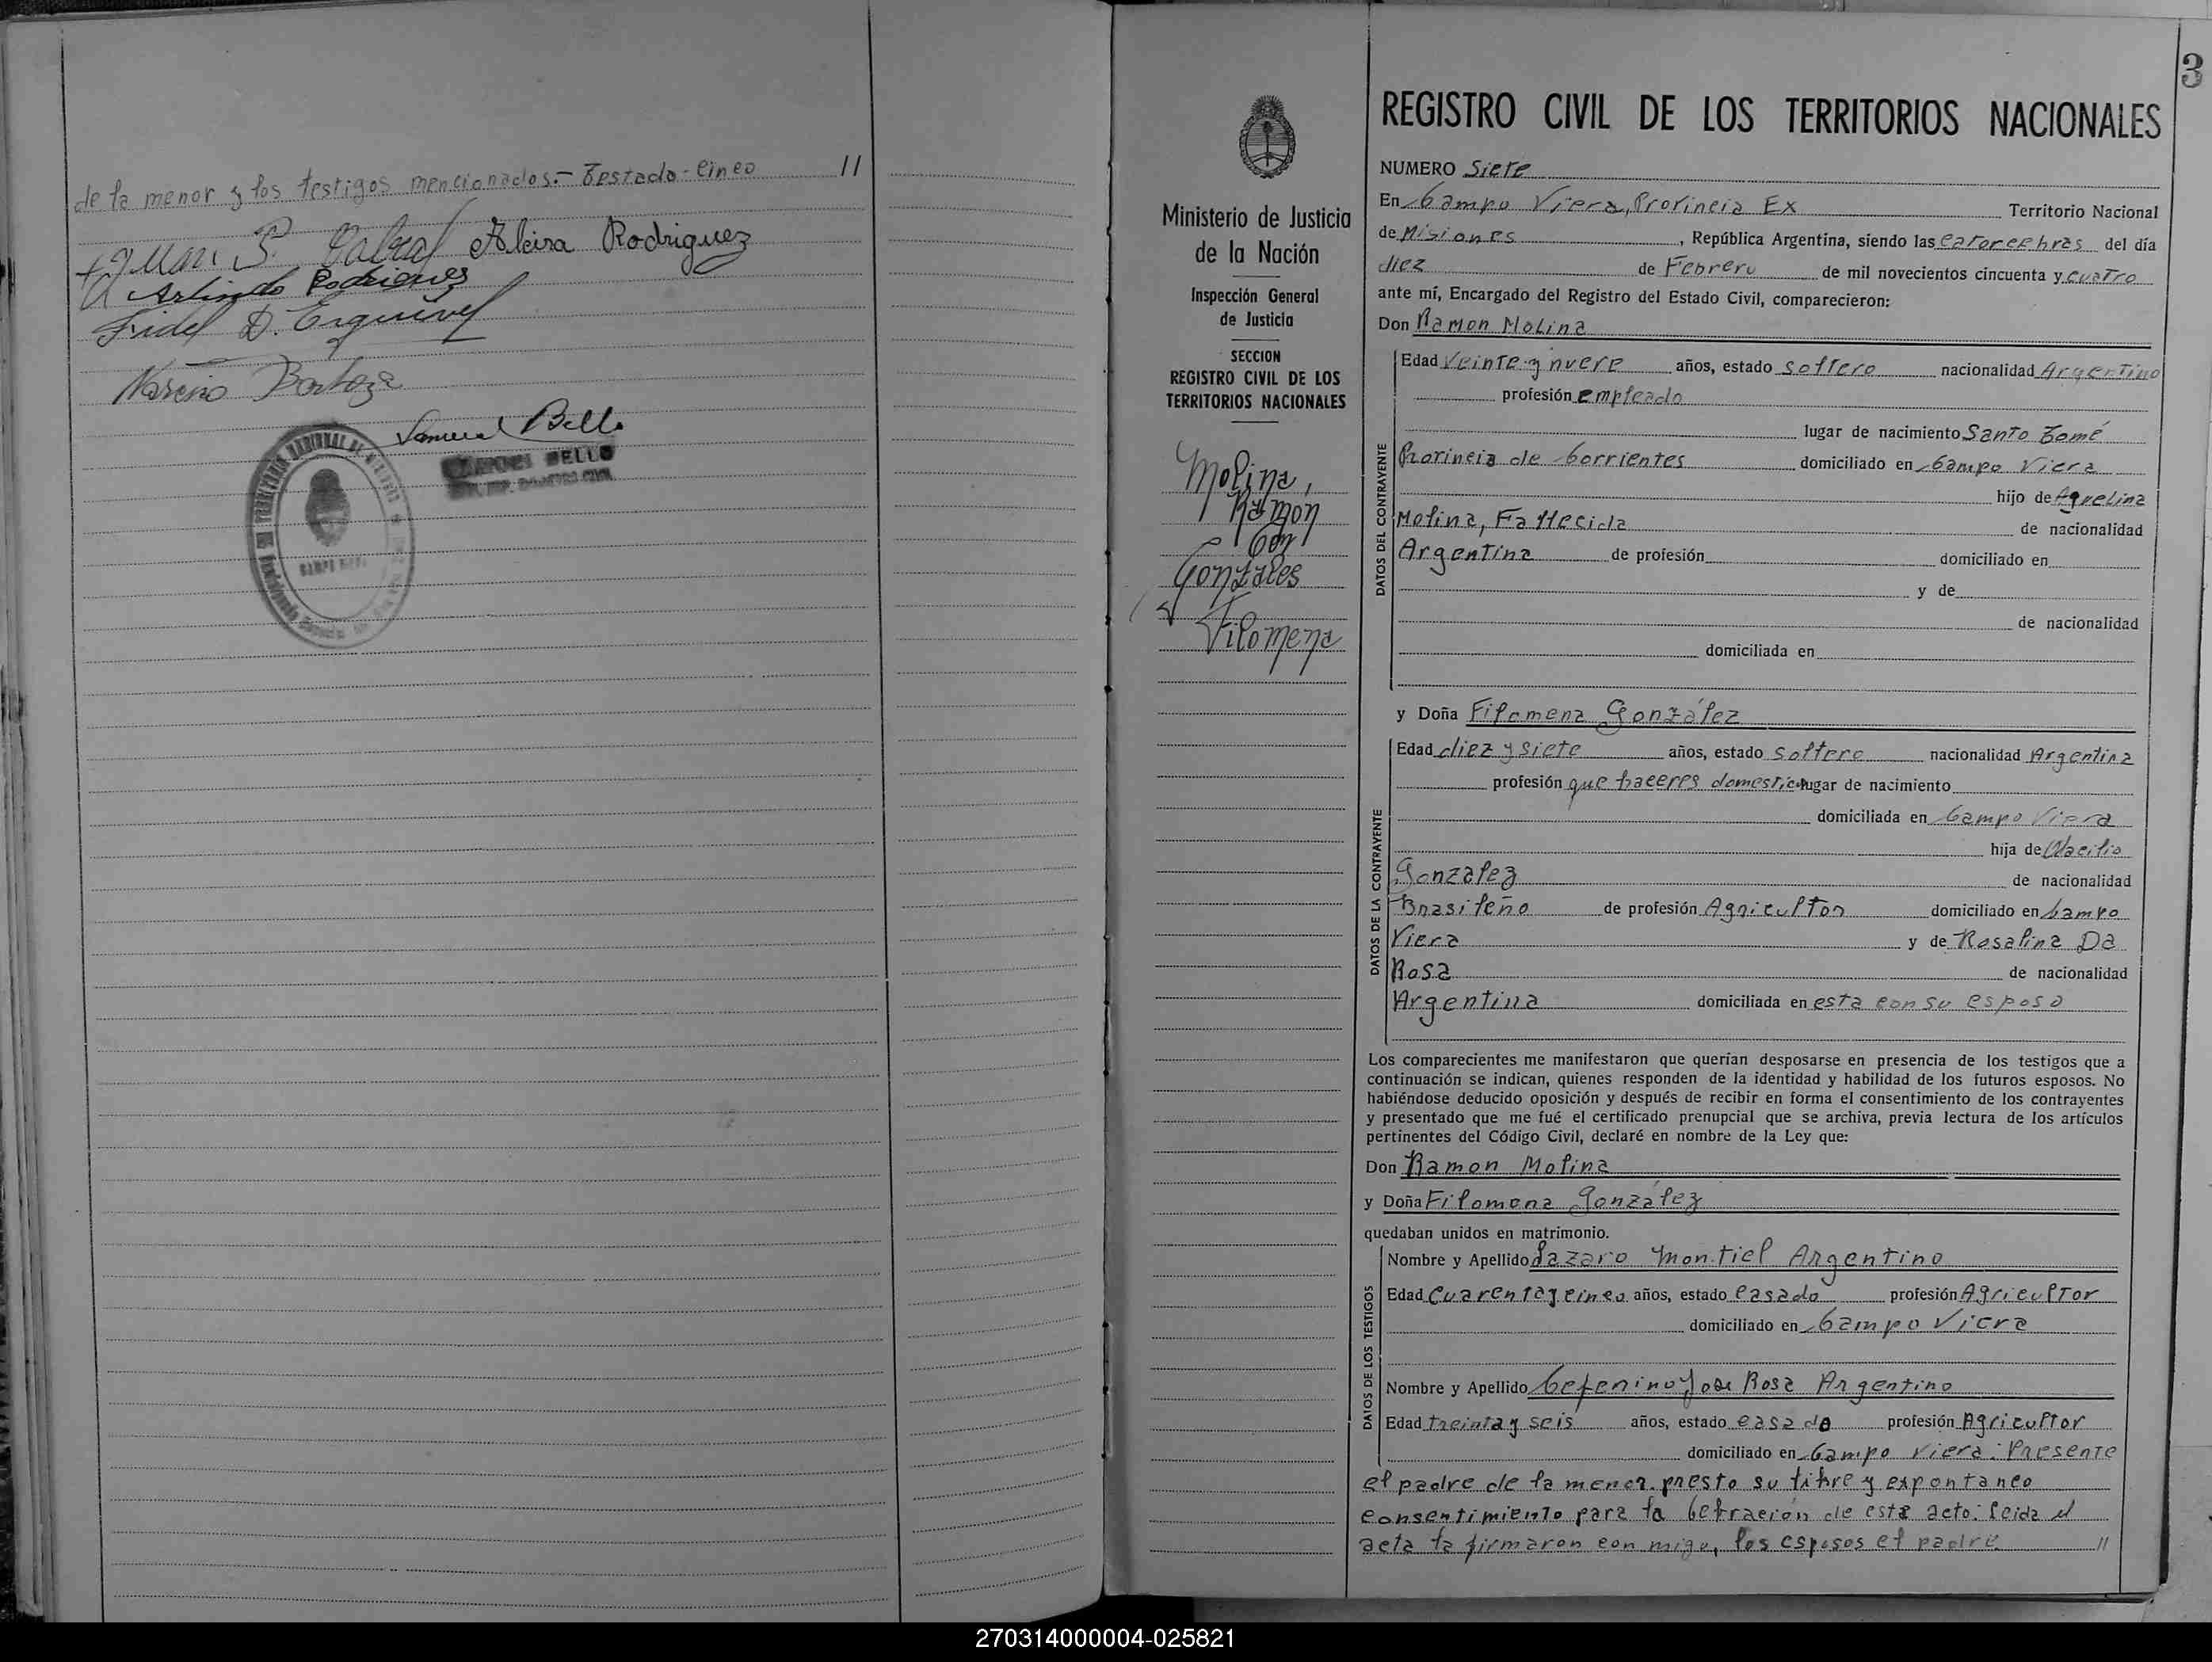 de la menor y los testigos mencionados.- Testado- cinco //
Juan P. Cabral Alcira Rodriguez
Arlindo Rodrigues
Fidel D. Esquivel
Bello
BELLO
3
REGISTRO CIVIL DE LOS TERRITORIOS NACIONALES
Ministerio de Justicia
de la Nación
Inspección General
de Justicia
SECCION
REGISTRO CIVIL DE LOS
TERRITORIOS NACIONALES
Molina,
Ramón
con
Gonzales
Filomena
NUMERO Siete
En Campo Viera, Provincia Ex Territorio Nacional
de Misiones, República Argentina, siendo las catorce hras del día
diez de Febrero de mil novecientos cincuenta y cuatro
ante mí, Encargado del Registro del Estado Civil, comparecieron:
Don Ramon Molina
DATOS DEL CONTRAYENTE
Edad Veinte y nueve años, estado soltero nacionalidad Argentino
profesión empleado
lugar de nacimiento Santo Tomé
Provincia de Corrientes domiciliado en Campo Viera
hijo de Aquelina
Molina, Fallecida de nacionalidad
Argentina de profesión domiciliado en
y de
de nacionalidad
domiciliada en
y Doña Filomena González
DATOS DE LA CONTRAYENTE
Edad diez y siete años, estado soltera nacionalidad Argentina
profesión que haceres domestic lugar de nacimiento
domiciliada en Campo Viera
hija de
González de nacionalidad
Brasileño de profesión Agricultor domiciliado en Campo
Viera y de Rosalina Da
Rosa de nacionalidad
Argentina domiciliada en esta con su esposo
Los comparecientes me manifestaron que querían desposarse en presencia de los testigos que a
continuación se indican, quienes responden de la identidad y habilidad de los futuros esposos. No
habiéndose deducido oposición y después de recibir en forma el consentimiento de los contrayentes
y presentado que me fué el certificado prenupcial que se archiva, previa lectura de los artículos
pertinentes del Código Civil, declaré en nombre de la Ley que:
Don Ramon Molina
y Doña Filomena González
quedaban unidos en matrimonio.
DATOS DE LOS TESTIGOS
Nombre y Apellido Lazaro Montiel Argentino
Edad Cuarenta y cinco años, estado casado profesión Agricultor
domiciliado en Campo Viera
Nombre y Apellido Ceferino José Rosa Argentino
Edad treinta y seis años, estado casado profesión Agricultor
domiciliado en Campo Viera. Presente
el padre de la menor presto su libre y expontaneo
consentimiento para la de este acto. Leida el
acta la firmaron con migo, los esposos el padre //
270314000004-025821